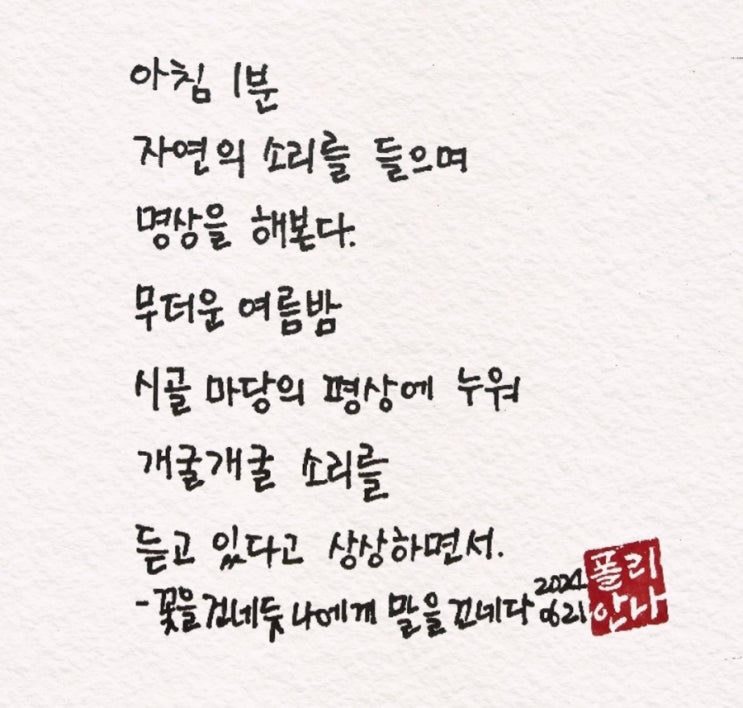 아침 1분
자연의 소리를 들으며
명상을 해본다.
무더운 여름밤
시골 마당의 평상에 누워
개굴개굴 소리를
듣고 있다고 상상하면서.
-꽃을 건네듯 나에게 말을 건네다
2024.
0621
폴리
안나